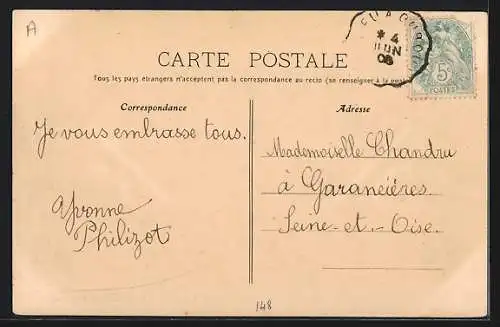 A
CARTE POSTALE
Tous les pays étrangers n'acceptent pas la correspondance au recto (se renseigner à la poste)
Correspondance
Adresse
Je vous embrasse tous.
Yvonne
Philizot
Mademoiselle Chandru
à Garancières
Seine-et-Oise.
* 4
JUIN
5c
POSTES
148